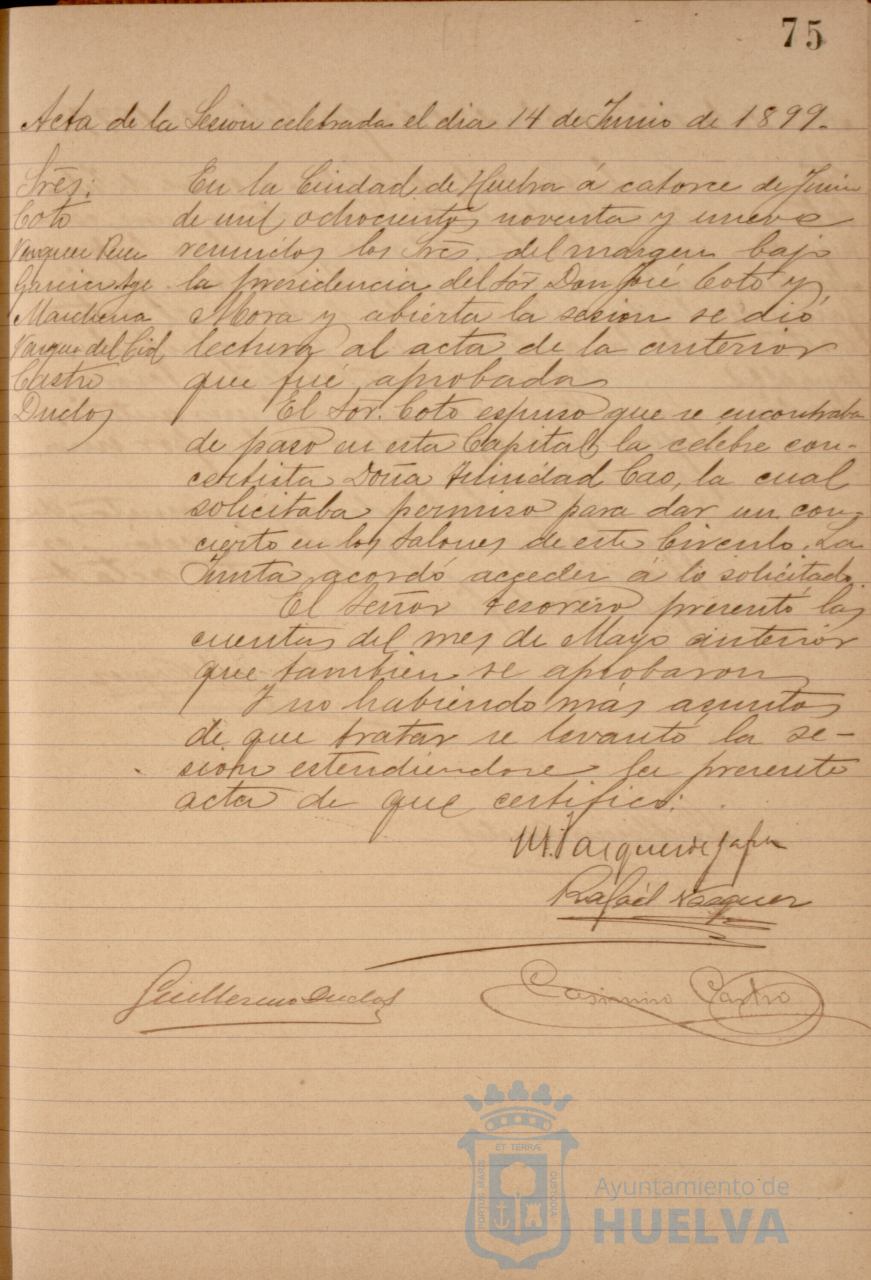 75
Acta de la Sesion celebrada el dia 14 de Junio de 1899.
Sres:
Coto
Vazquez
Garcia
Marchena
Vazquez del Cid
Castro
Duclos
En la Ciudad de Huelva á catorce de Junio
de mil ochocientos noventa y nueve
reunidos los Sres. del margen bajo
la presidencia del Sor Don José Coto y
Mora y abierta la sesion se dió
lectura al acta de la anterior
que fué aprobada
El Sor. Coto espuso que se encontraba
de paso en esta Capital la celebre con-
certista Doña Trinidad Cao, la cual
solicitaba permiso para dar un con-
cierto en los Salones de este Circulo. La
Junta acordó acceder á lo solicitado.
El Señor tesorero presentó las
cuentas del mes de Mayo anterior
que tambien se aprobaron
Y no habiendo más asuntos
de que tratar se levantó la se-
sion estendiendose la presente
acta de que certifico:
Rafaél Vazquez
Guillermo Duclos
Casimiro Castro
ET TERRÆ
PORTUS MARIS
CUSTODIA
Ayuntamiento de
HUELVA